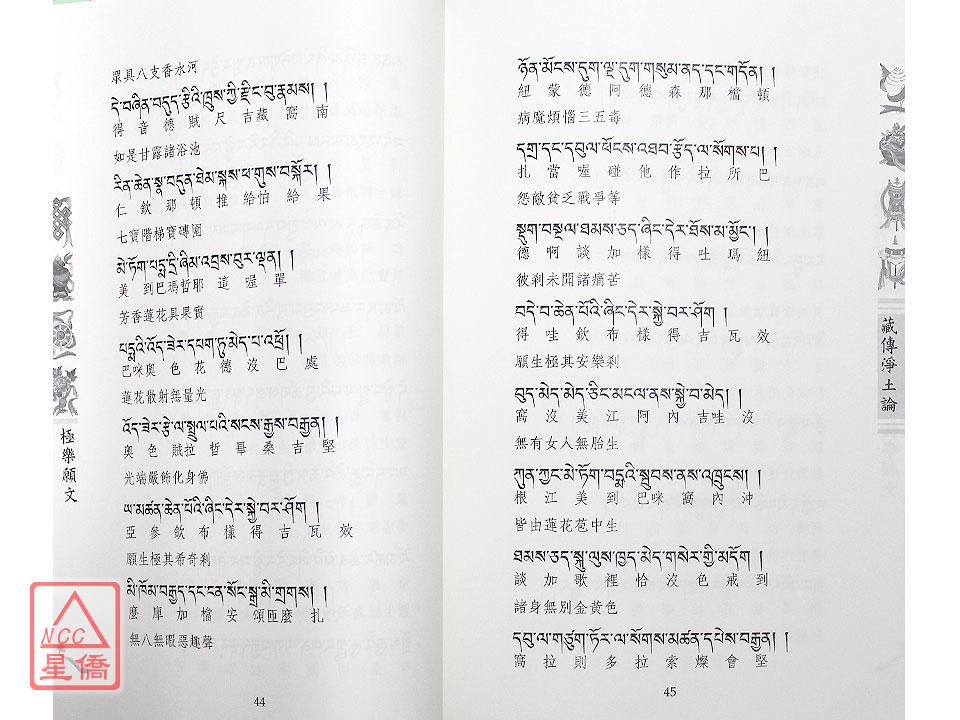 眾具八支香水河
དེ་བཞིན་བདུད་རྩིའི་ཁྲུས་ཀྱི་རྫིང་བུ་རྣམས། །
得 音 德 賊 尺 吉藏 窩 南
如是甘露諸浴池
རིན་ཆེན་སྣ་བདུན་ཐེམ་སྐས་ཕ་གུས་བསྐོར། །
仁 欽 那 頓 推 給怕 給 果
七寶階梯寶磚圍
མེ་ཏོག་པདྨ་དྲི་ཞིམ་འབྲས་བུར་ལྡན། །
美 到巴瑪哲耶 這 喔 單
芳香蓮花具果實
པདྨའི་འོད་ཟེར་དཔག་ཏུ་མེད་པ་འཕྲོ། །
巴咪奧 色 花 德 沒 巴 處
蓮花散射無量光
འོད་ཟེར་རྩེ་ལ་སྤྲུལ་པའི་སངས་རྒྱས་བརྒྱན། །
奧 色 賊拉 哲 畢 桑 吉 堅
光端嚴飾化身佛
ཡ་མཚན་ཆེན་པོའི་ཞིང་དེར་སྐྱེ་བར་ཤོག །
亞 參 欽 布 樣 得 吉 瓦 效
願生極其希奇剎
མི་ཁོམ་བརྒྱད་དང་ངན་སོང་སྒྲ་མི་གྲགས། །
麼 庫 加 檔 安 頌匝麼 扎
無八無暇惡趣聲
44
極樂願文
ཉོན་མོངས་དུག་ལྔ་དུག་གསུམ་ནད་དང་གདོན། །
紐 蒙 德 阿 德 森 那 檔 頓
病魔煩惱三五毒
དགྲ་དང་དབུལ་ཕོངས་འཐབ་རྩོད་ལ་སོགས་པ། །
扎 當 喔 碰 他 作 拉 所 巴
怨敵貧乏戰爭等
སྡུག་བསྔལ་ཐམས་ཅད་ཞིང་དེར་ཐོས་མ་མྱོང་། །
德 啊 談 加 樣 得 吐 瑪 紐
彼剎未聞諸痛苦
བདེ་བ་ཆེན་པོའི་ཞིང་དེར་སྐྱེ་བར་ཤོག །
得 哇 欽 布 樣 得 吉 瓦 效
願生極其安樂剎
བུད་མེད་མེད་ཅིང་མངལ་ནས་སྐྱེ་བ་མེད། །
窩 沒 美 江 阿 內 吉哇 沒
無有女人無胎生
ཀུན་ཀྱང་མེ་ཏོག་པདྨའི་སྦུབས་ནས་འཁྲུངས། །
根 江 美 到 巴咪 窩 內 沖
皆由蓮花苞中生
ཐམས་ཅད་སྐུ་ལུས་ཁྱད་མེད་གསེར་གྱི་མདོག །
談 加 歌 裡 恰 沒 色 戒 到
諸身無別金黃色
དབུ་ལ་གཙུག་ཏོར་ལ་སོགས་མཚན་དཔེས་བརྒྱན། །
窩 拉 則 多 拉 索 燦 會 堅
45
藏傳淨土論
NCC
星僑